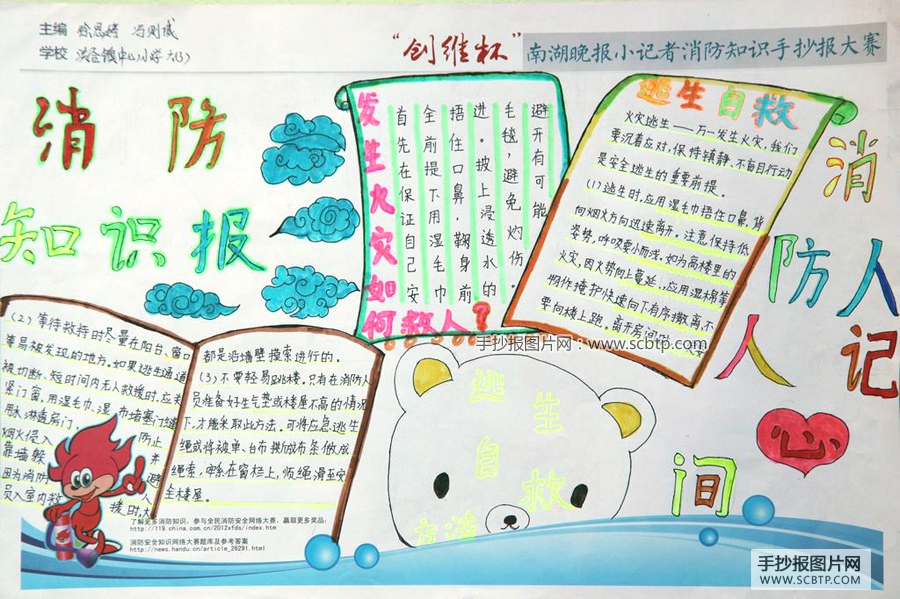 主编
学校
"创维杯" 南湖晚报小记者消防知识手抄报大赛
消防
知识报
发生火灾如
何救人?
首先在保证自己安
全前提下用湿毛巾
捂住口鼻,鞠身前
进。披上浸透水的
毛毯,避免灼伤。
避开有可能
逃生自救
火灾逃生——万一发生火灾,我们
要沉着应对,保持镇静、不盲目行动
是安全逃生的重要前提。
(1)逃生时,应用湿毛巾捂住口鼻,背
向烟火方向迅速离开。注意保持低
姿势,呼吸要小而浅。如为高楼里的
火灾,因火势向上蔓延,应用湿棉等
物作掩护快速向下有序撤离,不
要向楼上跑。离开房间
消防人人
人记
心间
(2)等待救持时尽量在阳台、窗口
等易被发现的地方。如果逃生通道
被切断、短时间内无人救援时,应关
紧门窗,用湿毛巾、湿布堵塞门缝
用水淋透房门,防止
烟火侵入
靠墙躲避
因为消防人
员入室内救援时,大
都是沿墙壁摸索进行的。
(3)不要轻易跳楼。只有在消防人
员准备好生气垫或楼层不高的情况
下,才能采取此方法,可将应急逃生
绳或将被单、台布撕成布条做成
绳索,牢系在窗栏上,顺绳滑至安
全楼层。
手抄报图片网:www.scbtp.com
逃生
自救
方法
了解更多消防知识,参与全民消防安全网络大赛,赢取更多奖品:
http://119.china.com.cn/2012xfds/index.htm
消防安全知识网络大赛题库及参考答案
http://news.handu.cn/article_26291.html
手抄报图片网
WWW.SCBTP.COM